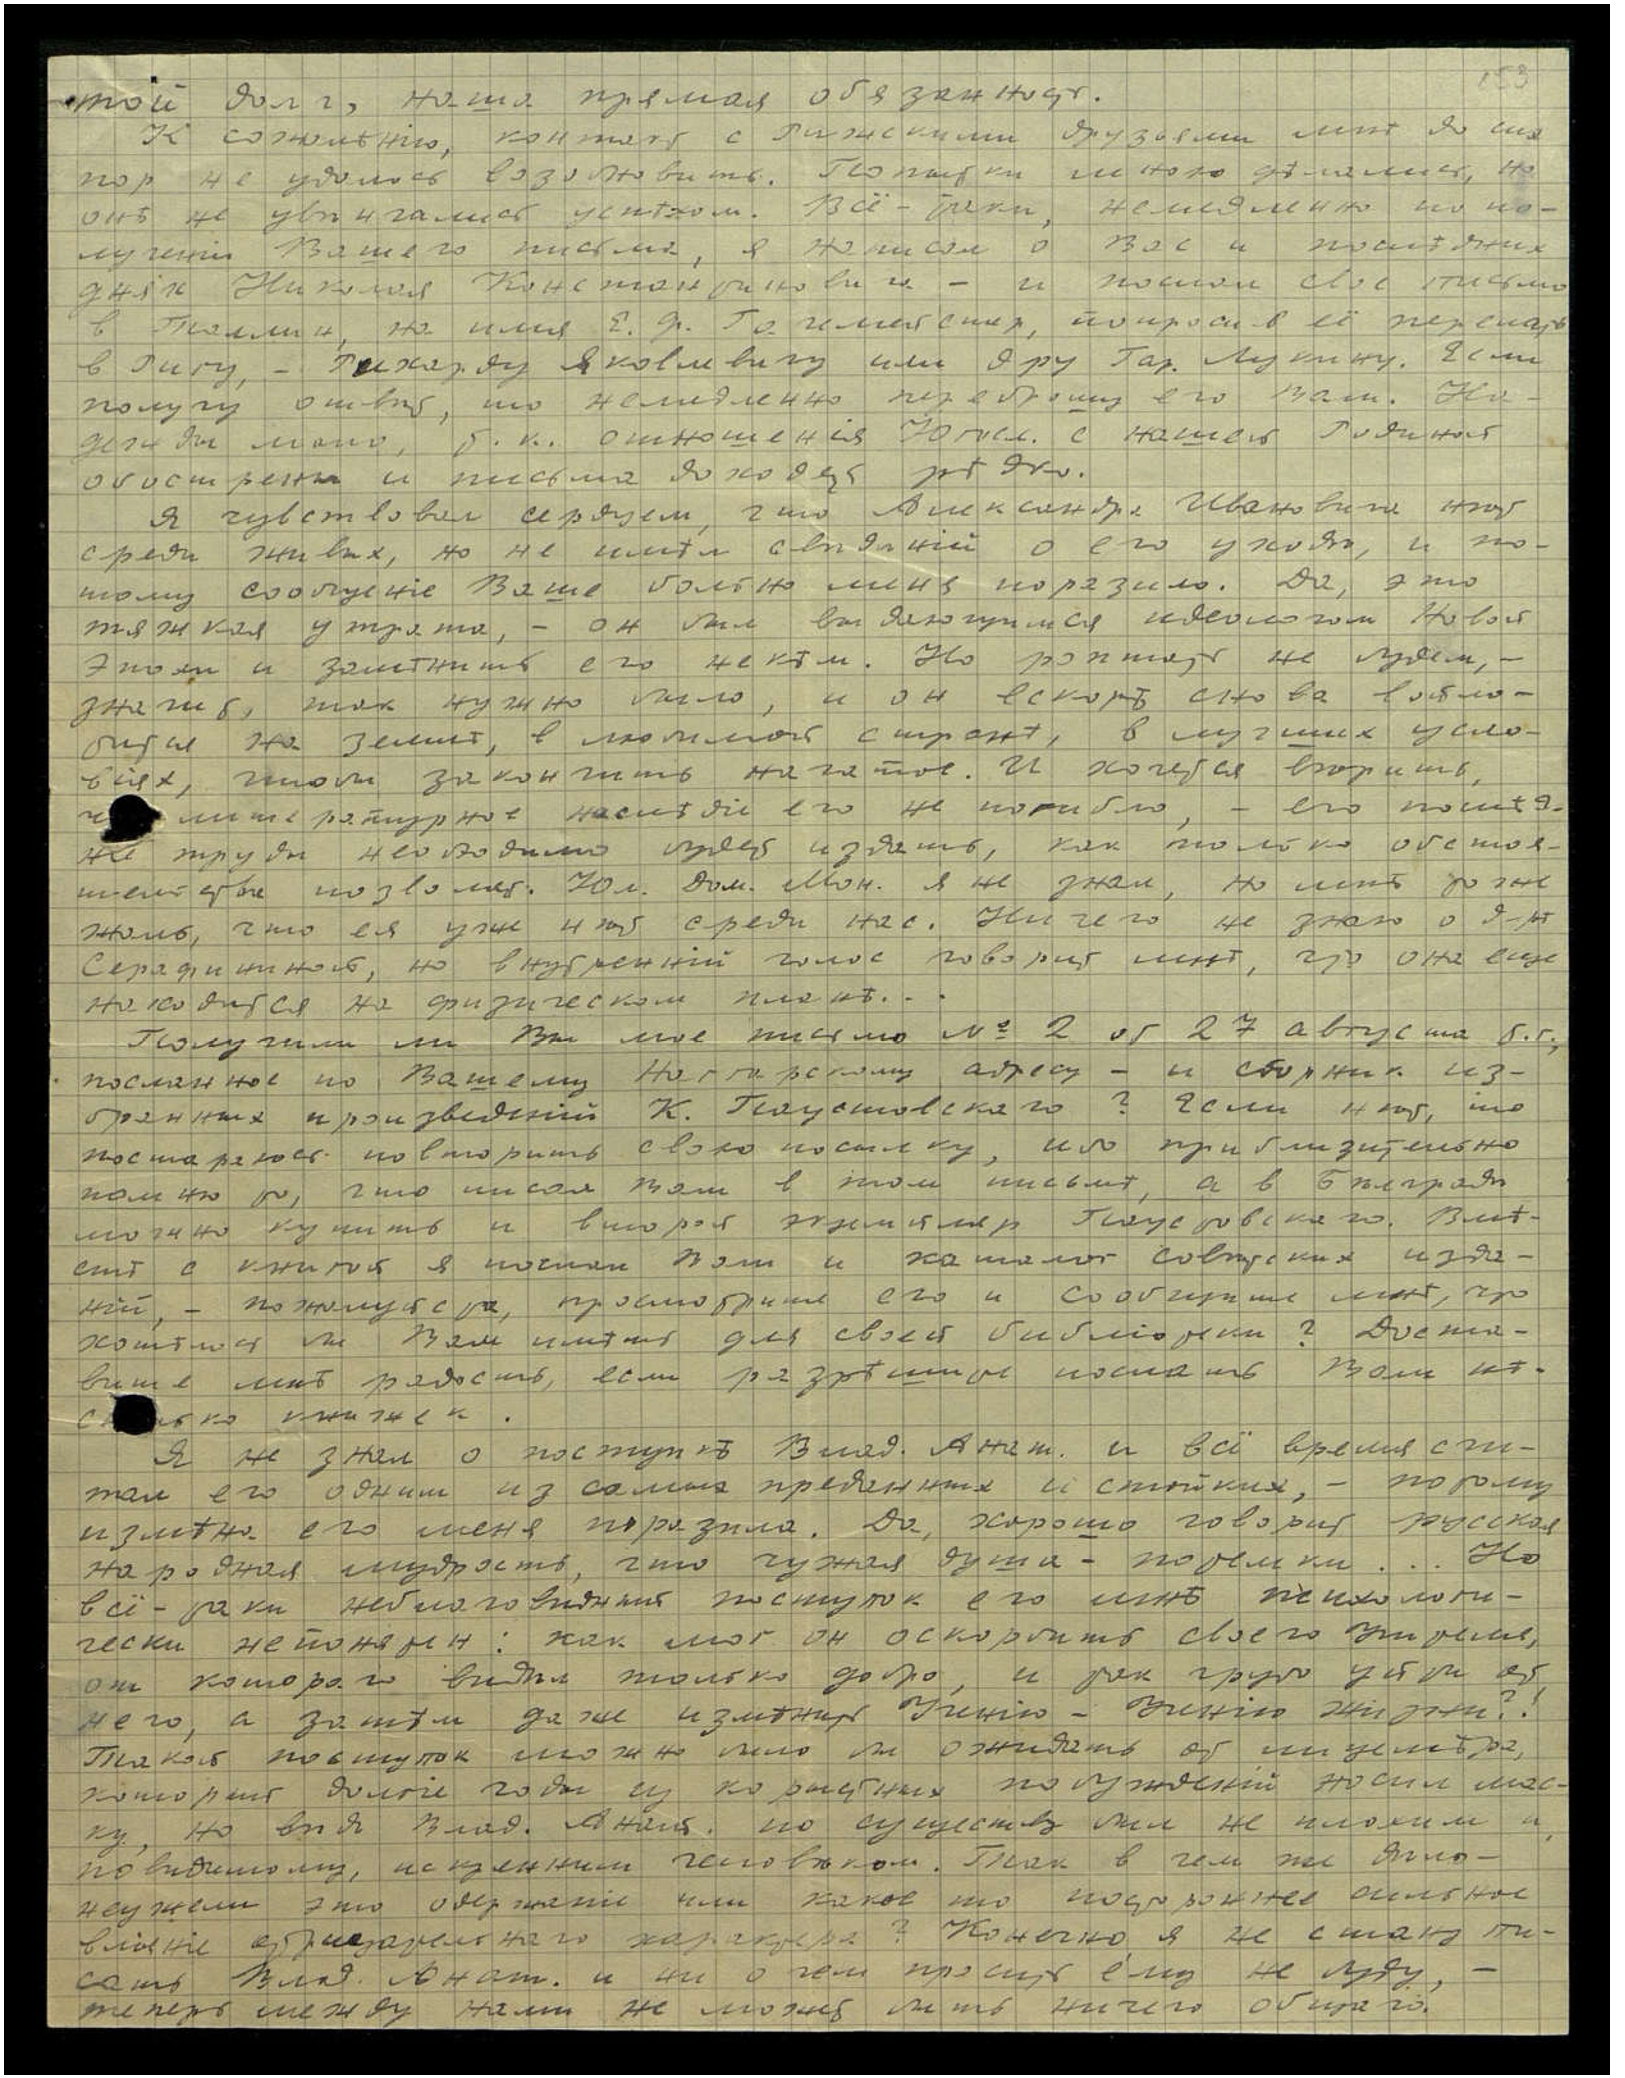 153
той долг, наша прямая обязанность.
К сожалѣнію, контакт с Рижскими друзьями мнѣ до сих
пор не удалось возобновить. Попытки мною дѣлались, но
онѣ не увѣнчались успѣхом. Всё-таки, немедленно по по-
лученіи Вашего письма, я написал о Вас и послѣдних
днях Николая Константиновича – и послал свое письмо
в Таллин, на имя Е. Ф. , попросив её переслать
в Ригу, – Рихарду Яковлевичу или д-ру Гар. Лукину. Если
получу отвѣт, то немедленно переброшу его Вам. На-
дежды мало, т. к. отношенія Югосл. с нашей Родиной
обострены и письма доходят рѣдко.
Я чувствовал сердцем, что Александра Ивановича нѣт
среди живых, но не имѣл свѣдѣній о его уходѣ, и по-
тому сообщеніе Ваше больно меня поразило. Да, это
тяжкая утрата, – он был выдающимся идеологом Новой
Эпохи и замѣнить его некѣм. Но роптать не будем, –
значит, так нужно было, и он вскорѣ снова вопло-
тится на землѣ, в любимой странѣ, в лучших усло-
віях, чтобы закончить начатое. И хочется вѣрить,
литературное наслѣдіе его не погибло, – его послѣд-
ніе труды необходимо будет издать, как только обстоя-
тельства позволят. Юл. Дом. Мон. я не знал, но мнѣ тоже
жаль, что ея уже нѣт среди нас. Ничего не знаю о д-рѣ
Серафининой, но внутренній голос говорит мнѣ, что она еще
находится на физическом планѣ...
Получили ли Вы мое письмо № 2 от 27 августа т.г.,
посланное по Вашему Наггарскому адресу – и сборник из-
бранных произведеній К. Паустовскаго? Если нѣт, то
постараюсь повторить свою посылку, ибо приблизительно
помню то, что писал Вам в том письмѣ, а в Бѣлградѣ
можно купить и второй экземпляр Паустовскаго. Вмѣ-
стѣ с книгой я послал Вам и каталог совѣтских изда-
ній, – пожалуйста, просмотрите его и сообщите мнѣ, что
хотѣлось бы Вам имѣть для своей библіотеки? Доста-
вите мнѣ радость, если разрѣшите послать Вам нѣ-
сколько книжек.
Я не знал о поступкѣ Влад. Анат. и всё время счи-
тал его одним из самых преданных и стойких, – потому
измѣна его меня поразила. Да, хорошо говорит русская
народная мудрость, что чужая душа – потемки... Но
всё-таки неблаговидный поступок его мнѣ психологи-
чески непонятен: как мог он оскорбить своего Учителя,
от котораго видѣл только добро, и так грубо уйти от
него, а затѣм даже измѣнить Ученію – Ученію Жизни?!
Такой поступок можно было бы ожидать от лицемѣра,
который долгіе годы из корыстных побужденій носил мас-
ку, но вѣдь Влад. Анат. по существу был не плохим и,
повидимому, искренним человѣком. Так в чем же дѣло –
неужели это одержаніе или какое то постороннее сильное
вліяніе отрицательнаго характера? Конечно, я не стану пи-
сать Влад. Анат. и ни о чем просить ему не буду, –
теперь между нами не может быть ничего общаго.